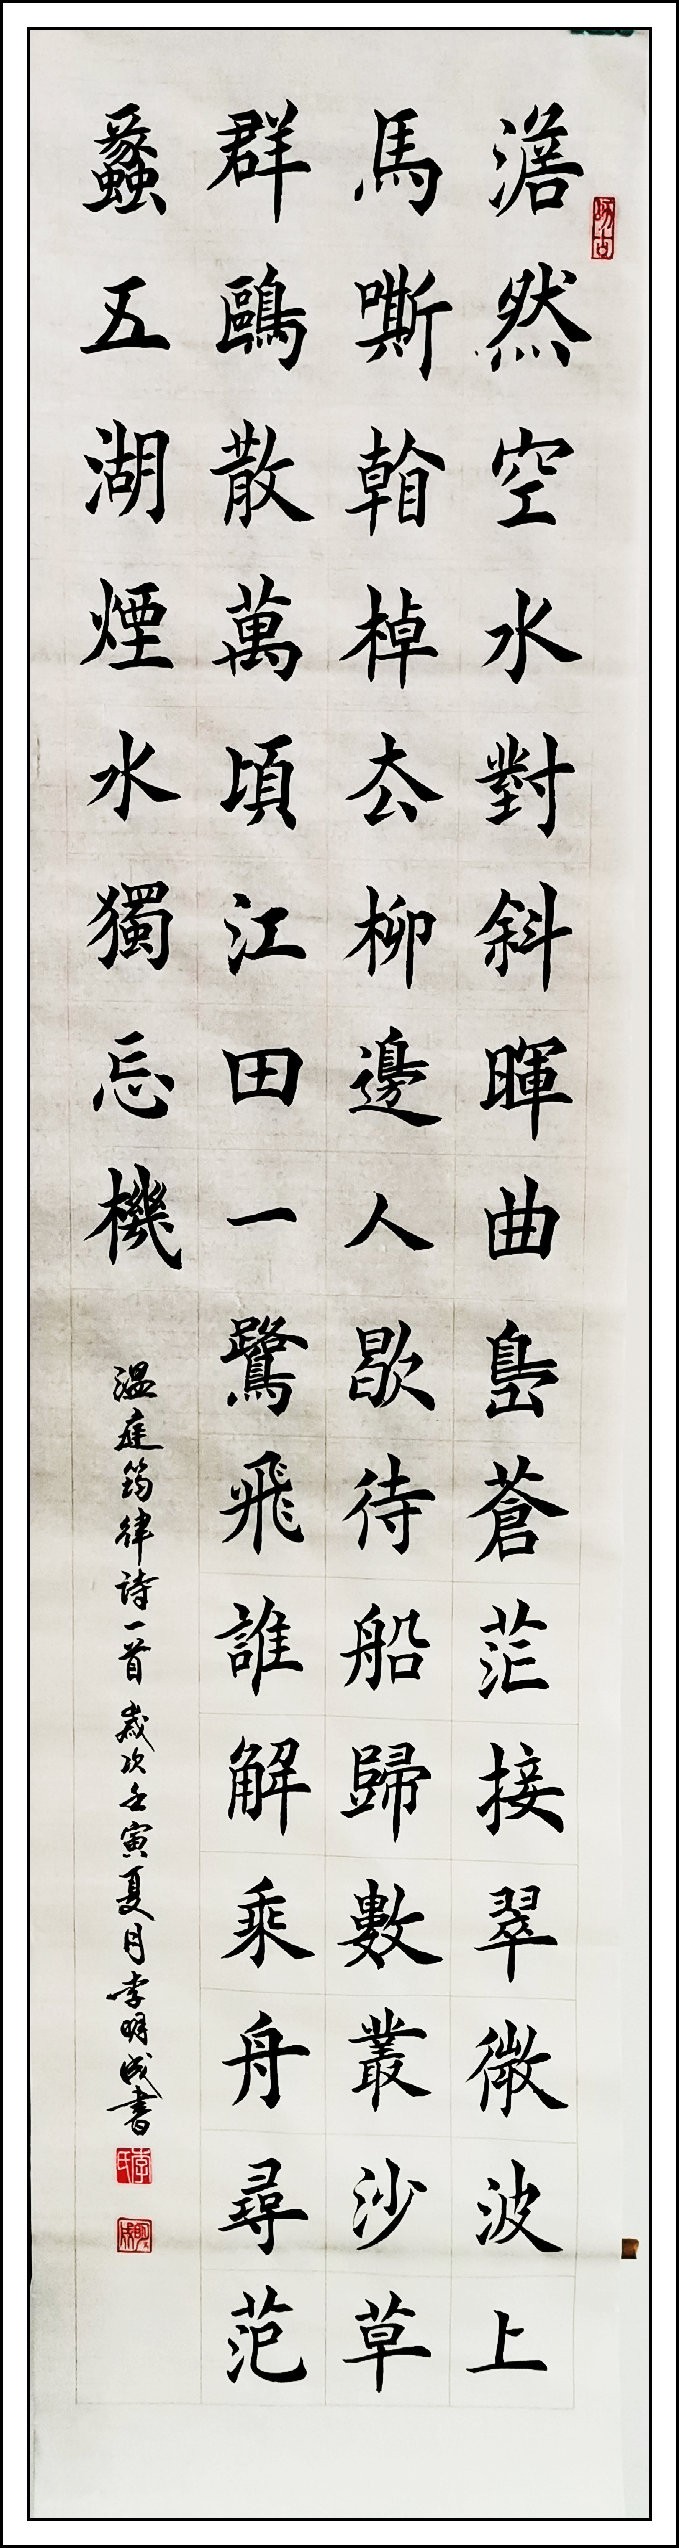 澹然空水對斜暉曲島蒼茫接翠微波上
馬嘶㿝棹厺柳邊人歇待船歸數叢沙草
群鷗散萬頃江田一鷺飛誰解乘舟尋范
蠡五湖煙水獨忘機
溫庭筠律詩一首 歲次壬寅夏月李明成書
李氏